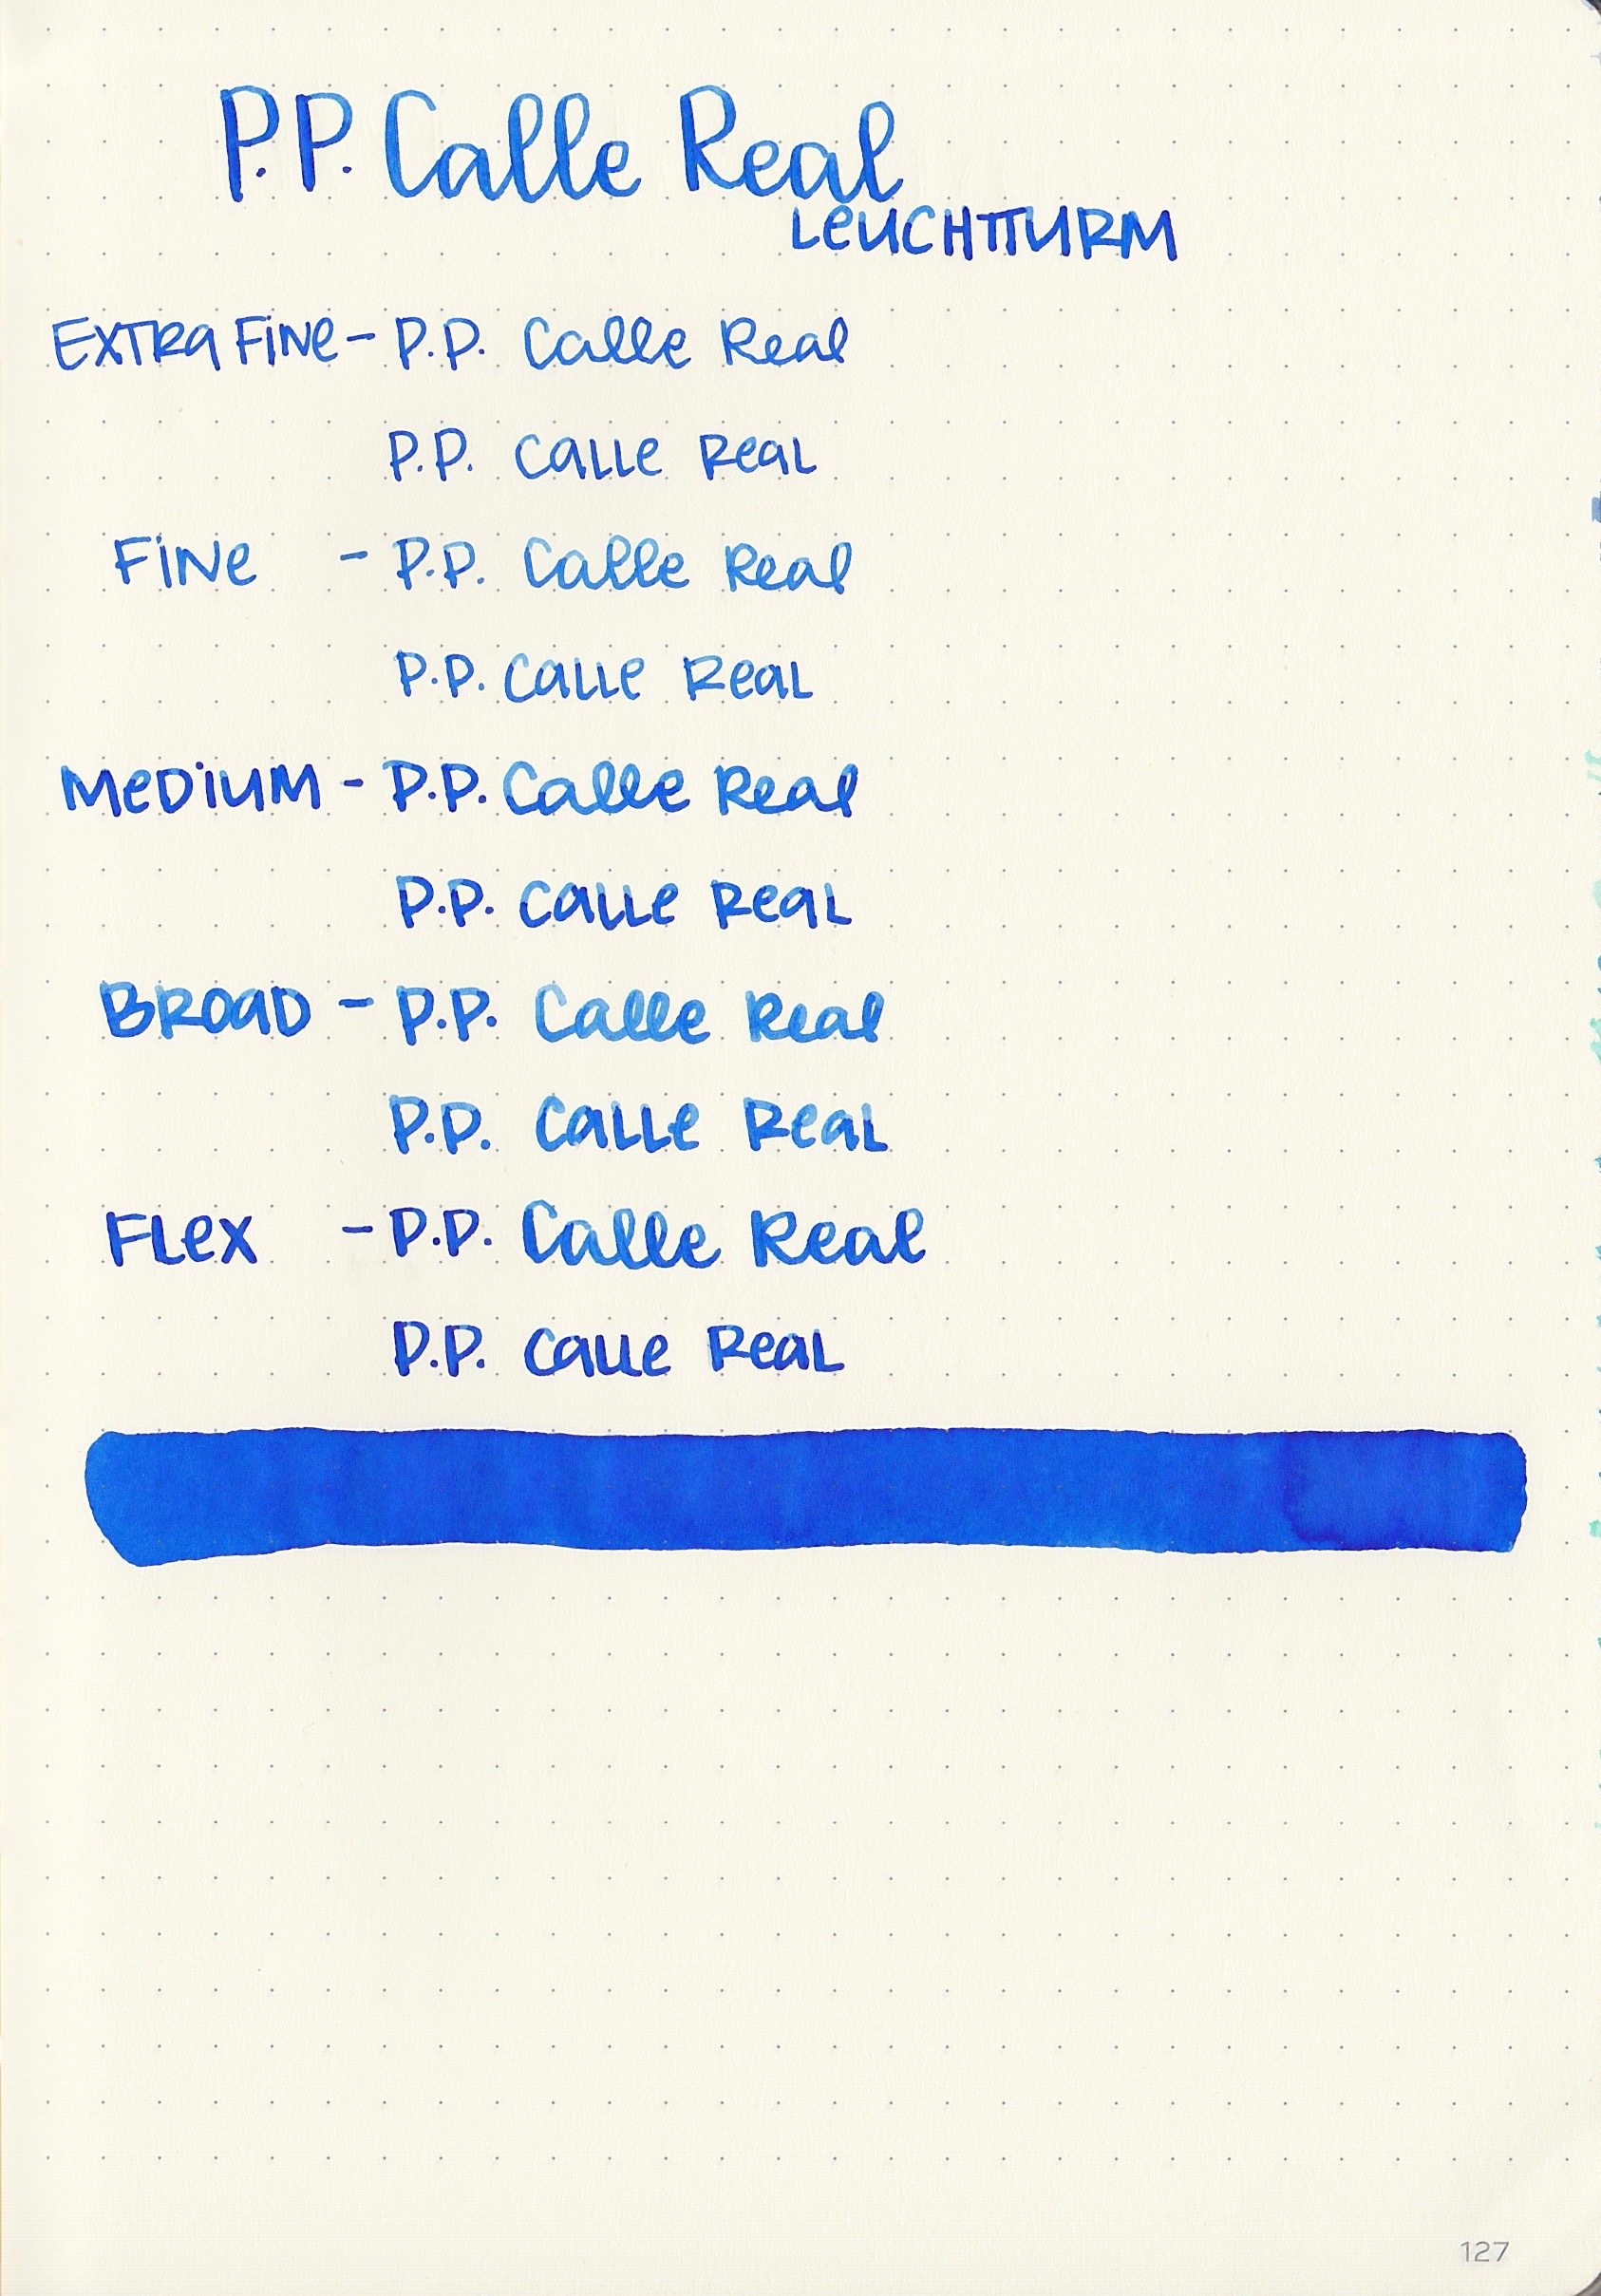 P.P. Calle Real
LEUCHTTURM
EXTRA FINE - P.P. Calle Real
P.P. Calle Real
FINE - P.P. Calle Real
P.P. Calle Real
MEDIUM - P.P. Calle Real
P.P. Calle Real
BROAD - P.P. Calle Real
P.P. Calle Real
FLEX - P.P. Calle Real
P.P. Calle Real
127